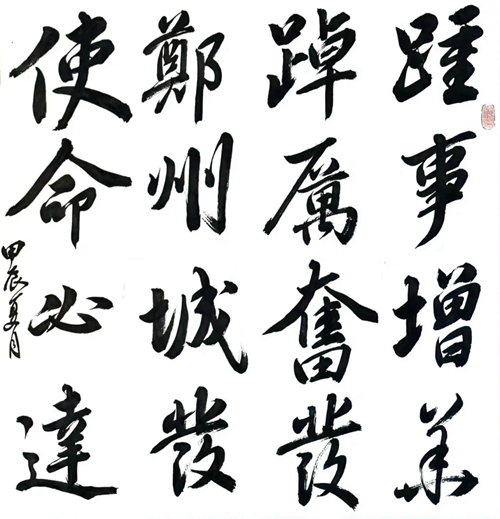 踵事增华
踔厲奮發
鄭州城發
使命必達
甲辰夏月